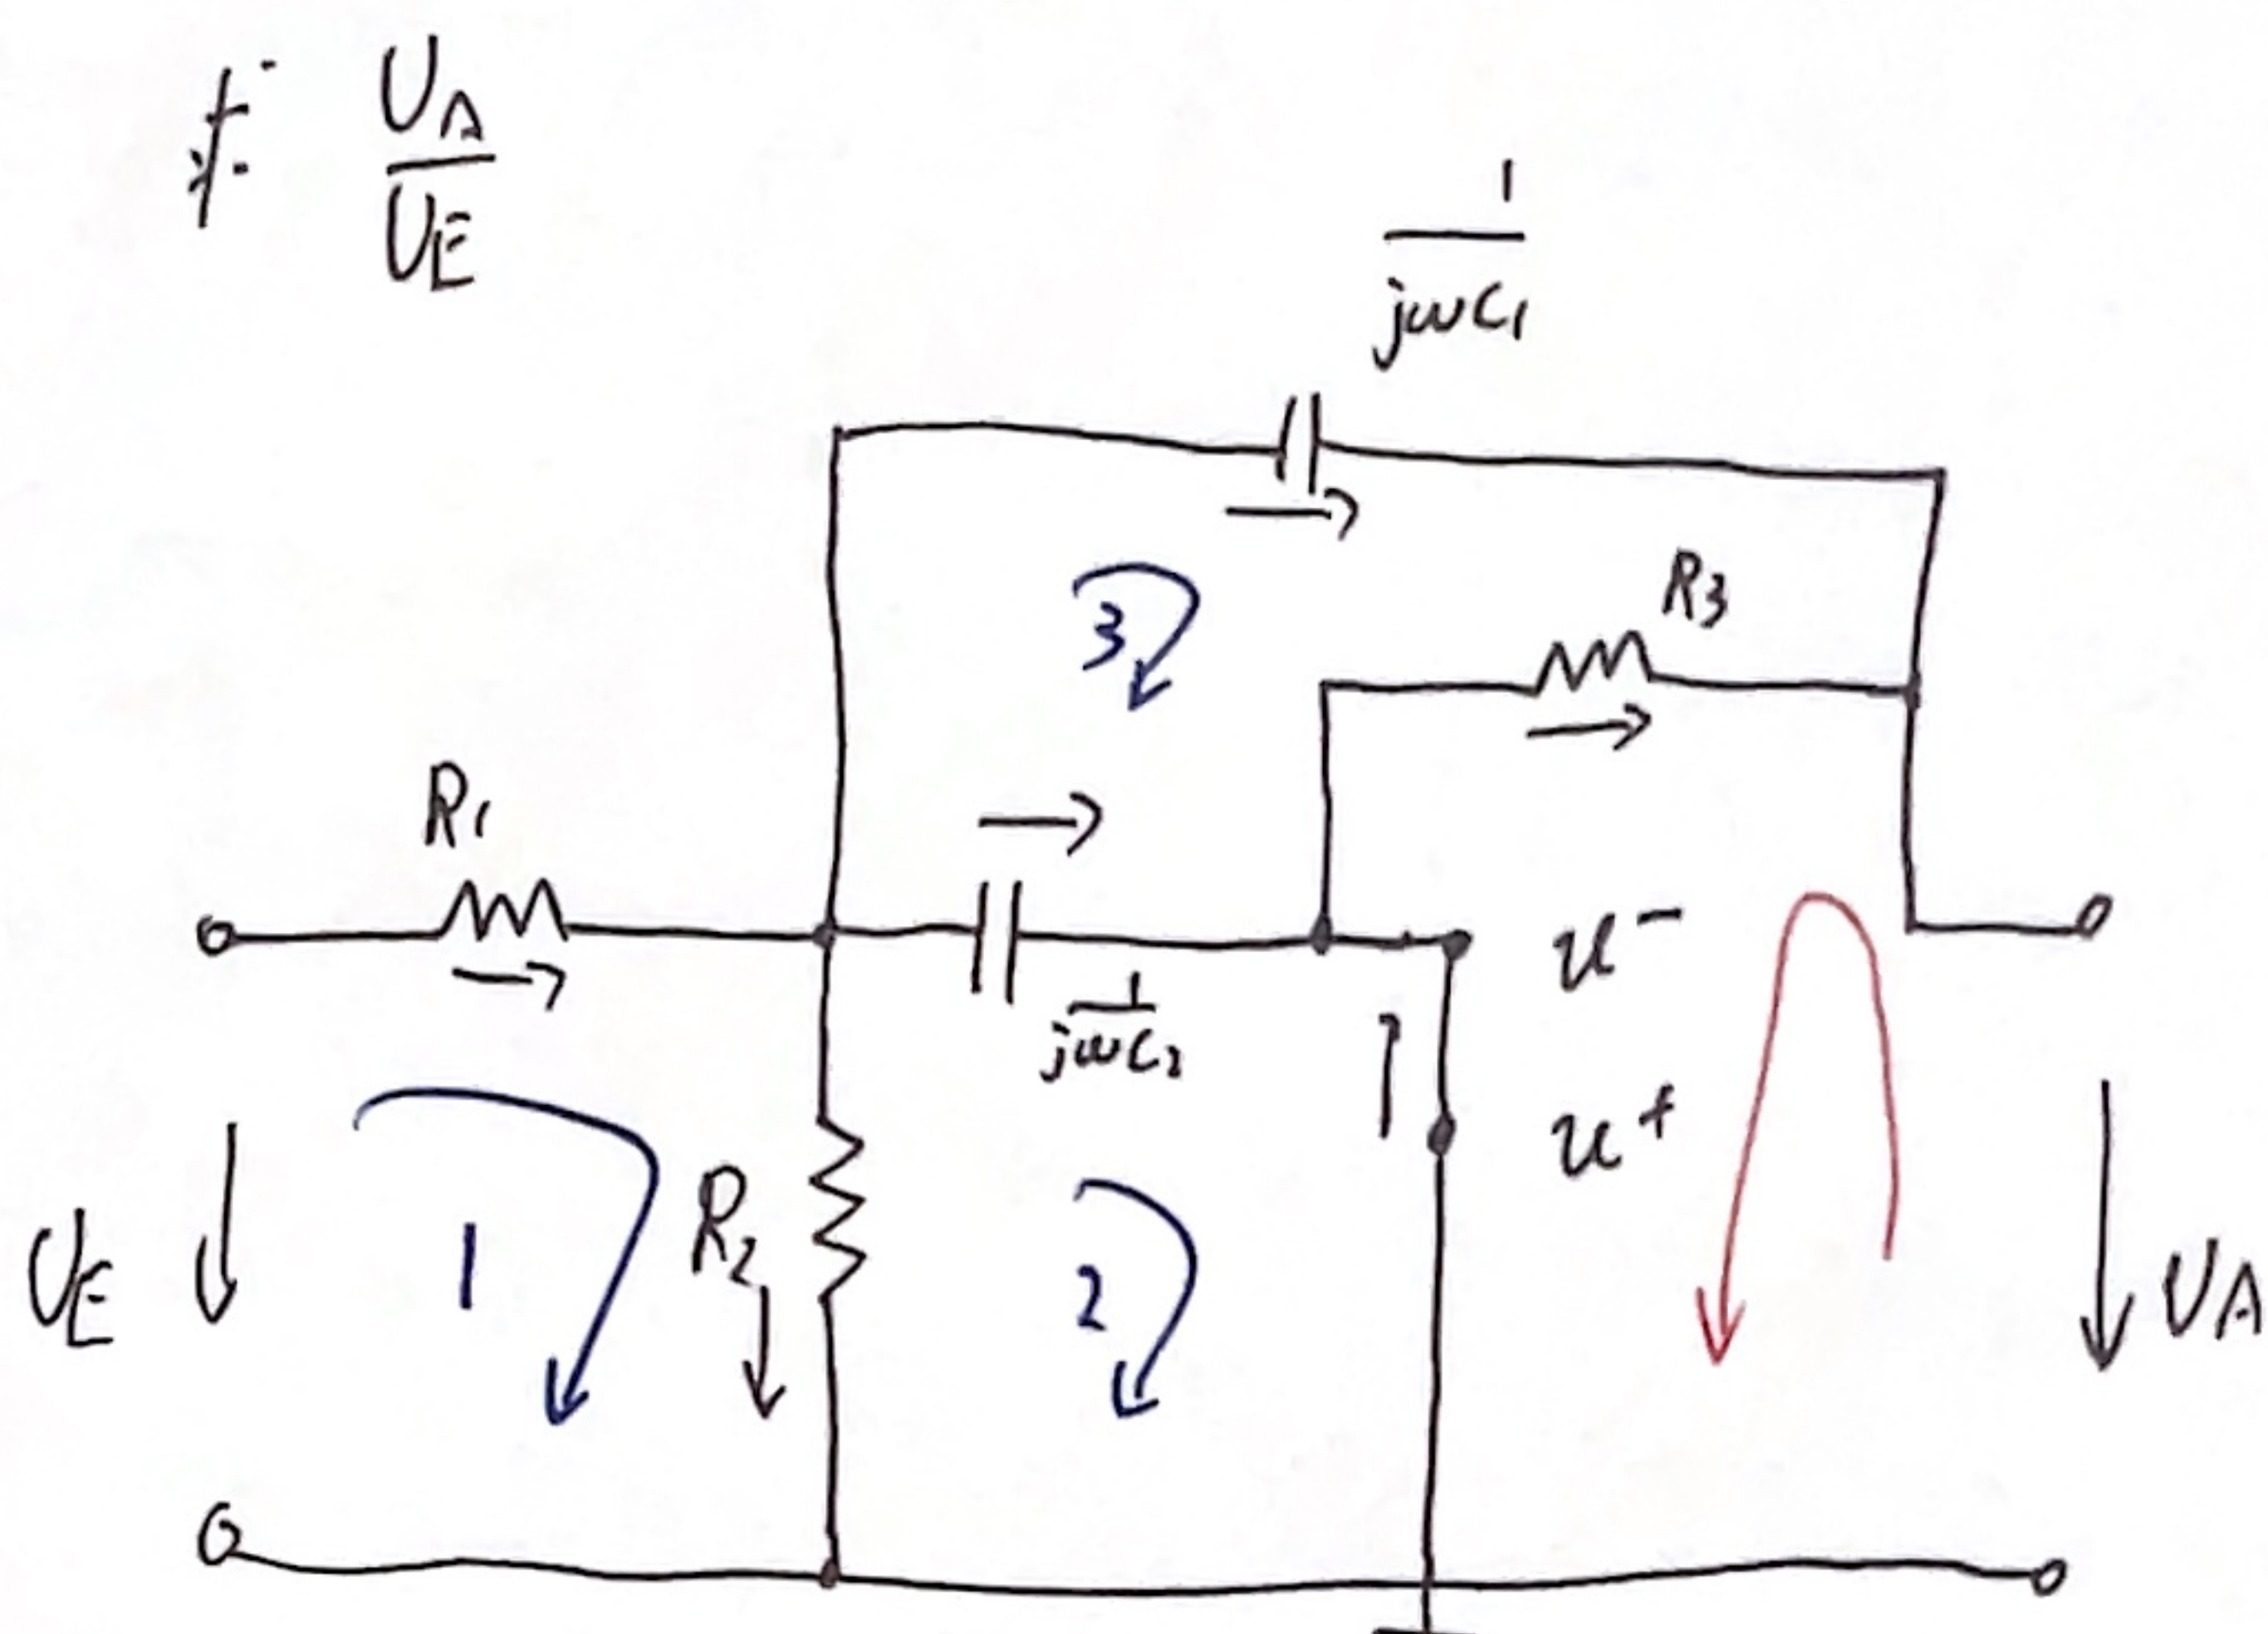 求: U_A/U_E
1/jωC₁
3
R₃
R₁
1/jωC₂
u⁻
u⁺
U_E
1
R₂
2
U_A